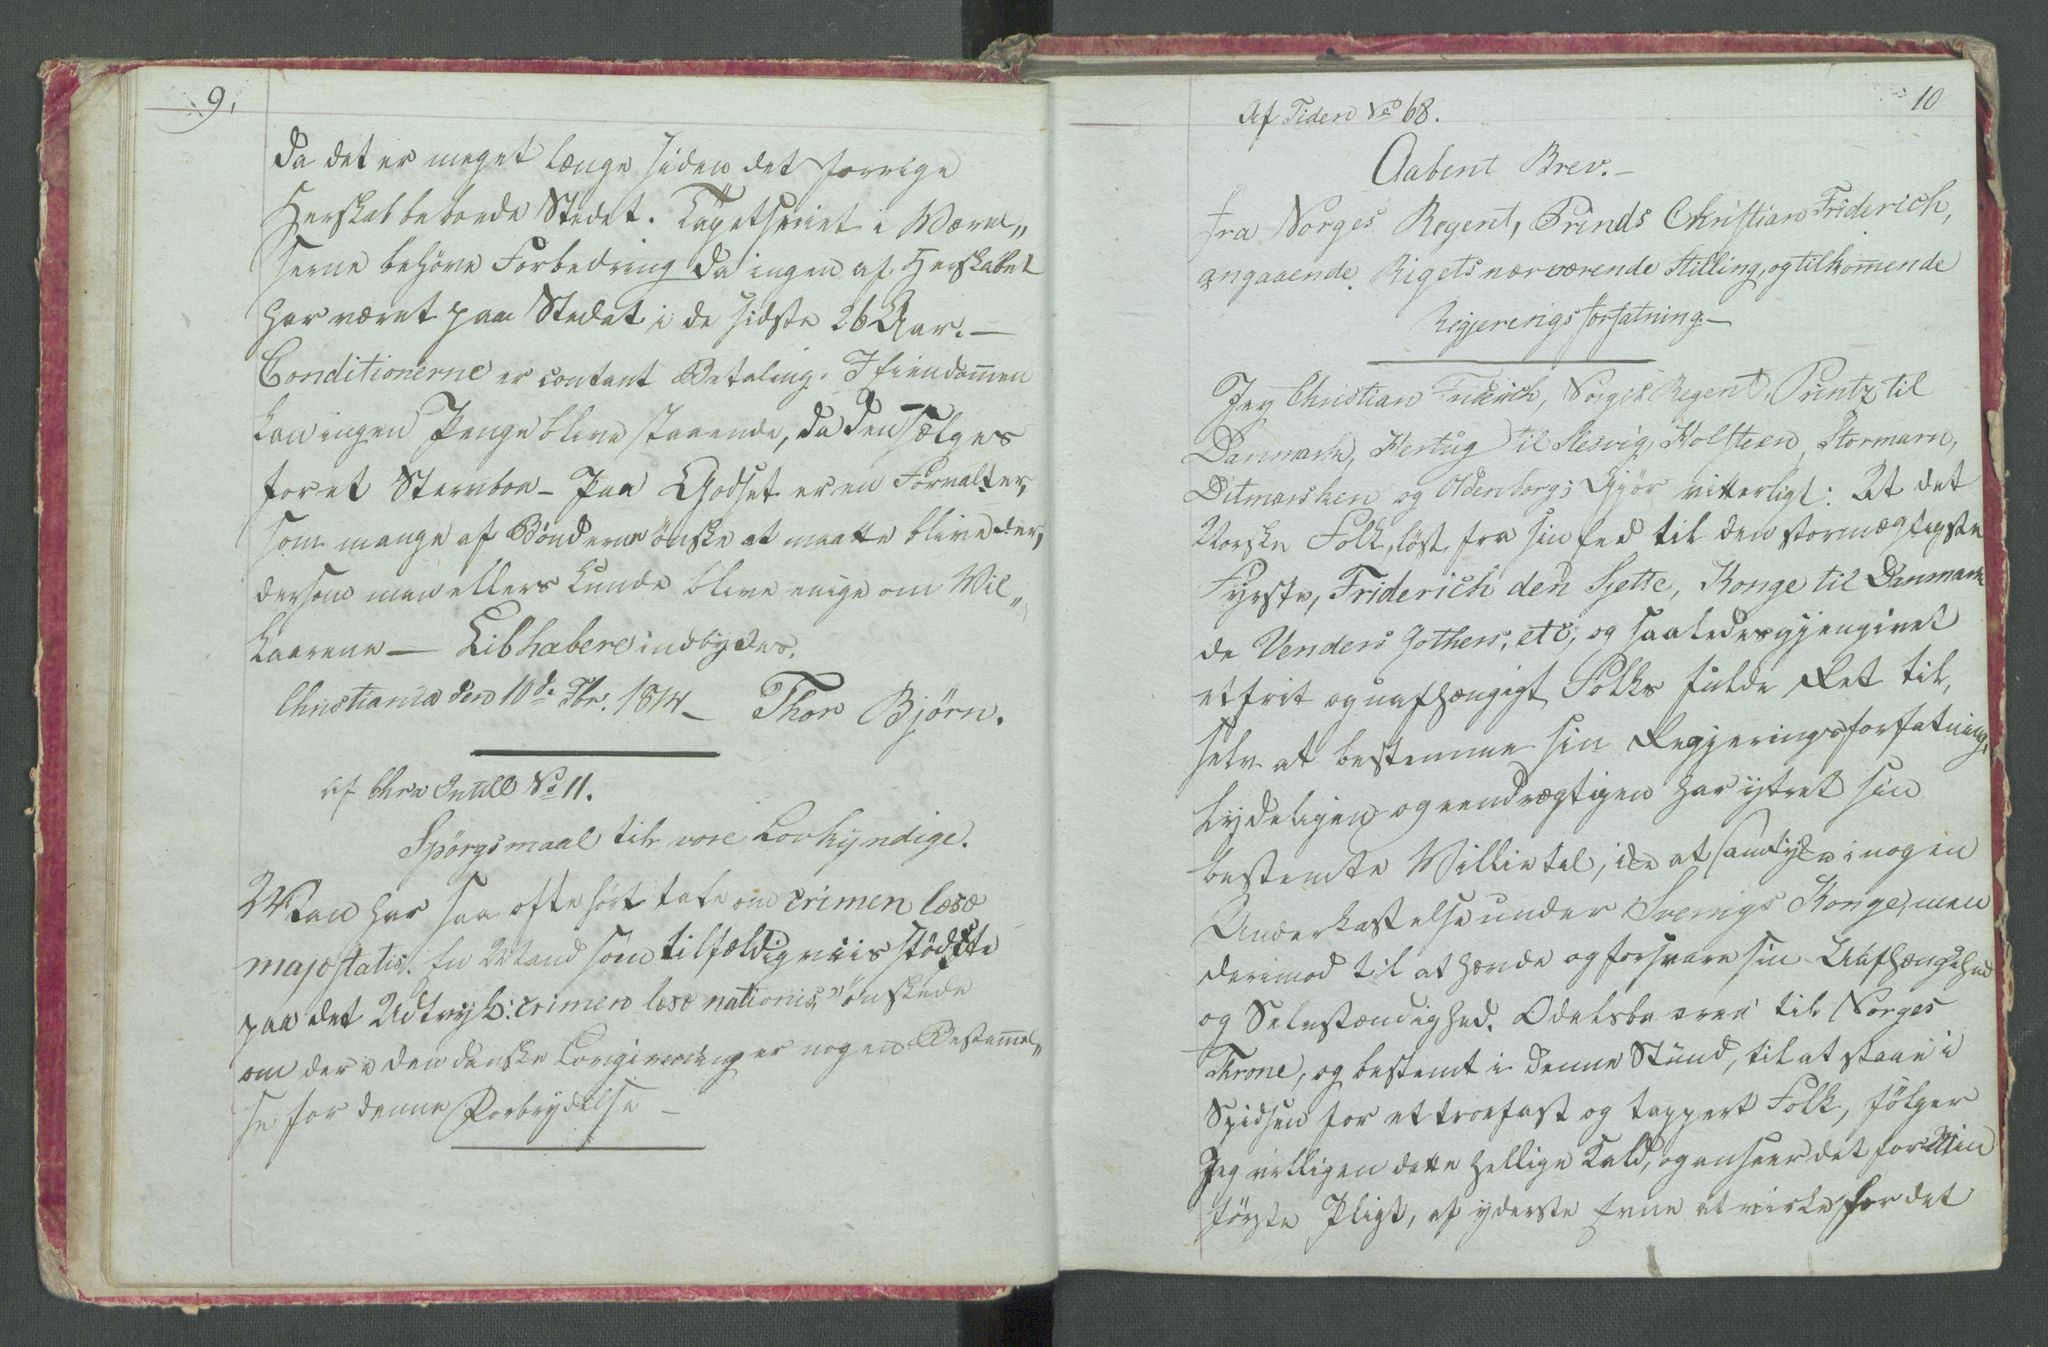 9,
da det er meget længe siden det forrige
Herskab beboede Stedet. Tapetseriet i Værel„
serne behöve Forbedring da ingen af Herskabet
har været paa Stedet i de sidste 26 Aar. —
Conditionerne er contant Betaling. I Eiendom̅en
kan ingen Penge blive staaende, da den sælges
for et Stervboe — Paa Godset er en Forvalter,
som mange af Bönderne önske at maatte blive der,
dersom man ellers kunde blive enige om Vil„
kaarene — Libhabere indbydes.
Christiania den 10de Fbr. 1814 — Thor Björn.
af Chra Intell No 11.
Spörgsmaal til vore Lovkyndige.
Man har saa ofte hört tale om crimen læsæ
majestatis. En Mand som tilfældigviis stödte
paa det Udtryk: crimen læsæ nationis," önskede
om der i den danske Lovgivning er nogen Bestem̅el„
se for denne Forbrydelse —
10
Af Tiden No 68.
Aabent Brev. —
fra Norges Regent, Prinds Christian Friderich,
angaaende Rigets nærværende Stilling, og tilkom̅ende
Regjerings forfatning. —
Jeg Christian Friderich, Norges Regent, Printz til
Danmark, Hertug til Slesvig, Holsteen, Stormarn,
Ditmarsken og Oldenborg; Gjör vitterligt: At det
Norske Folk, löst fra sin Eed til den stormægtigste
Fyrste, Friderich den Sjette, Konge til Danmark
de Venders Gothers, etc, og saaledes gjengivet
et frit og uafhængigt Folks fulde Ret til,
selv at bestemme sin Regjeringsforfatning,
lydeligen og eendrægtigen har ytret sin
bestemte Villie til, ikke at samtykke i nogen
Underkastelse under Sverrigs Konge, men
derimod til at hævde og forsvare sin Uafhængighed
og Selvstændighed. Odelsbaaren til Norges
Throne, og bestemt i denne Stund, til at staae i
Spidsen for et troefast og tappert Folk, fölger
Jeg villigen dette hellige Kald, og anseer det for Min
förste Pligt, af yderste Evne at virke for det